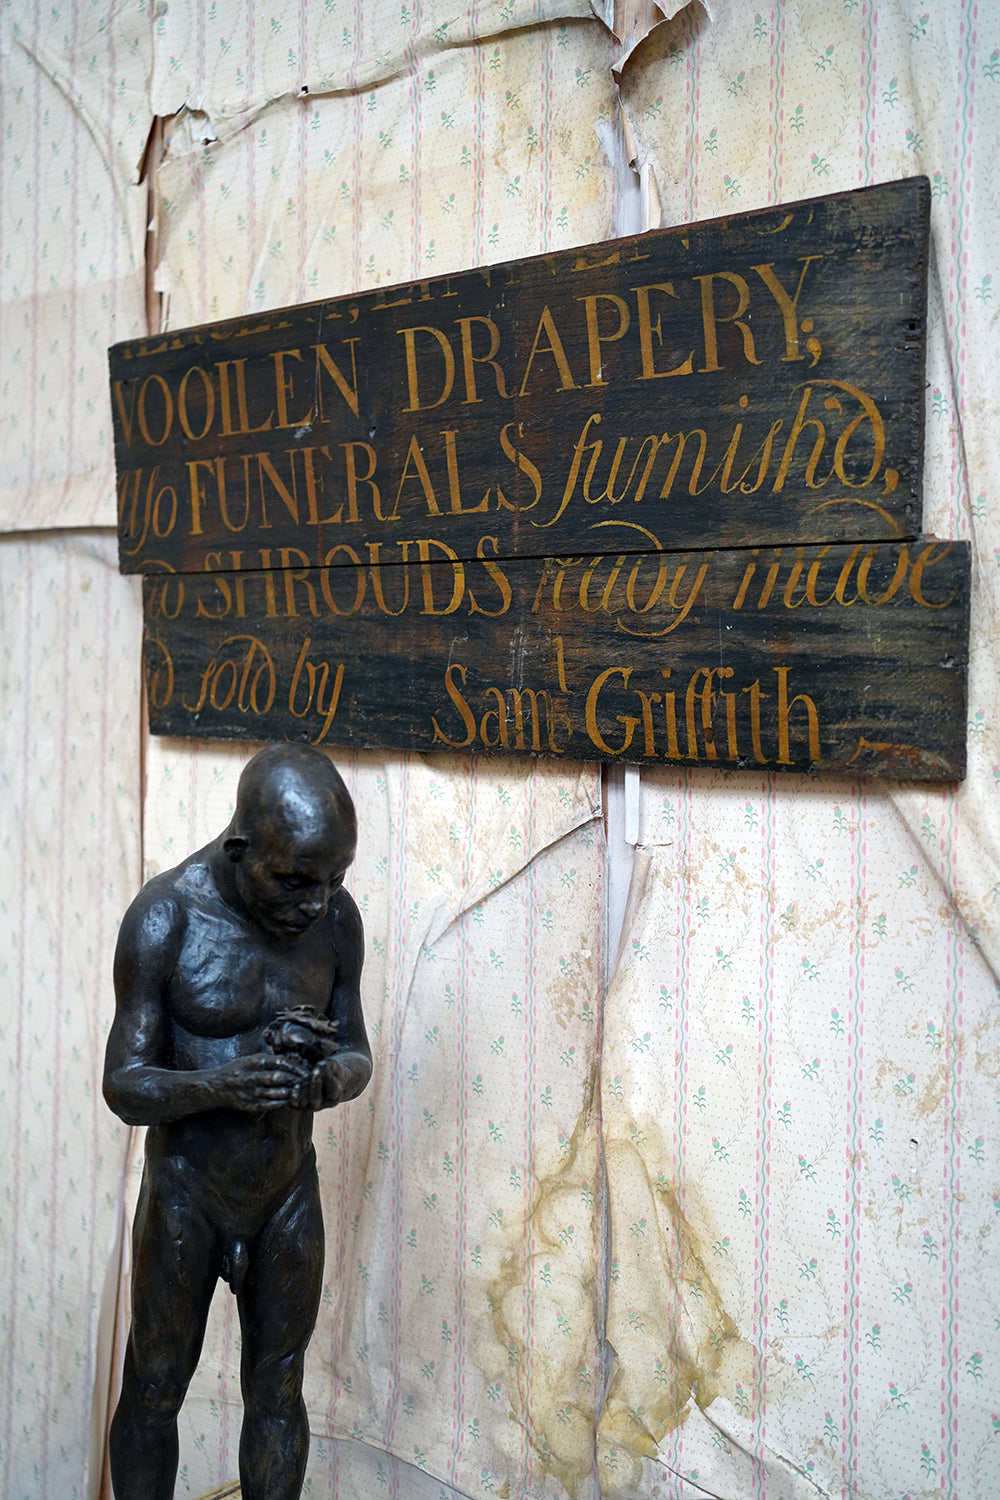 WOOILEN DRAPERY;
also FUNERALS furnish'd,
SHROUDS ready made
sold by Sam<sup>l</sup> Griffith